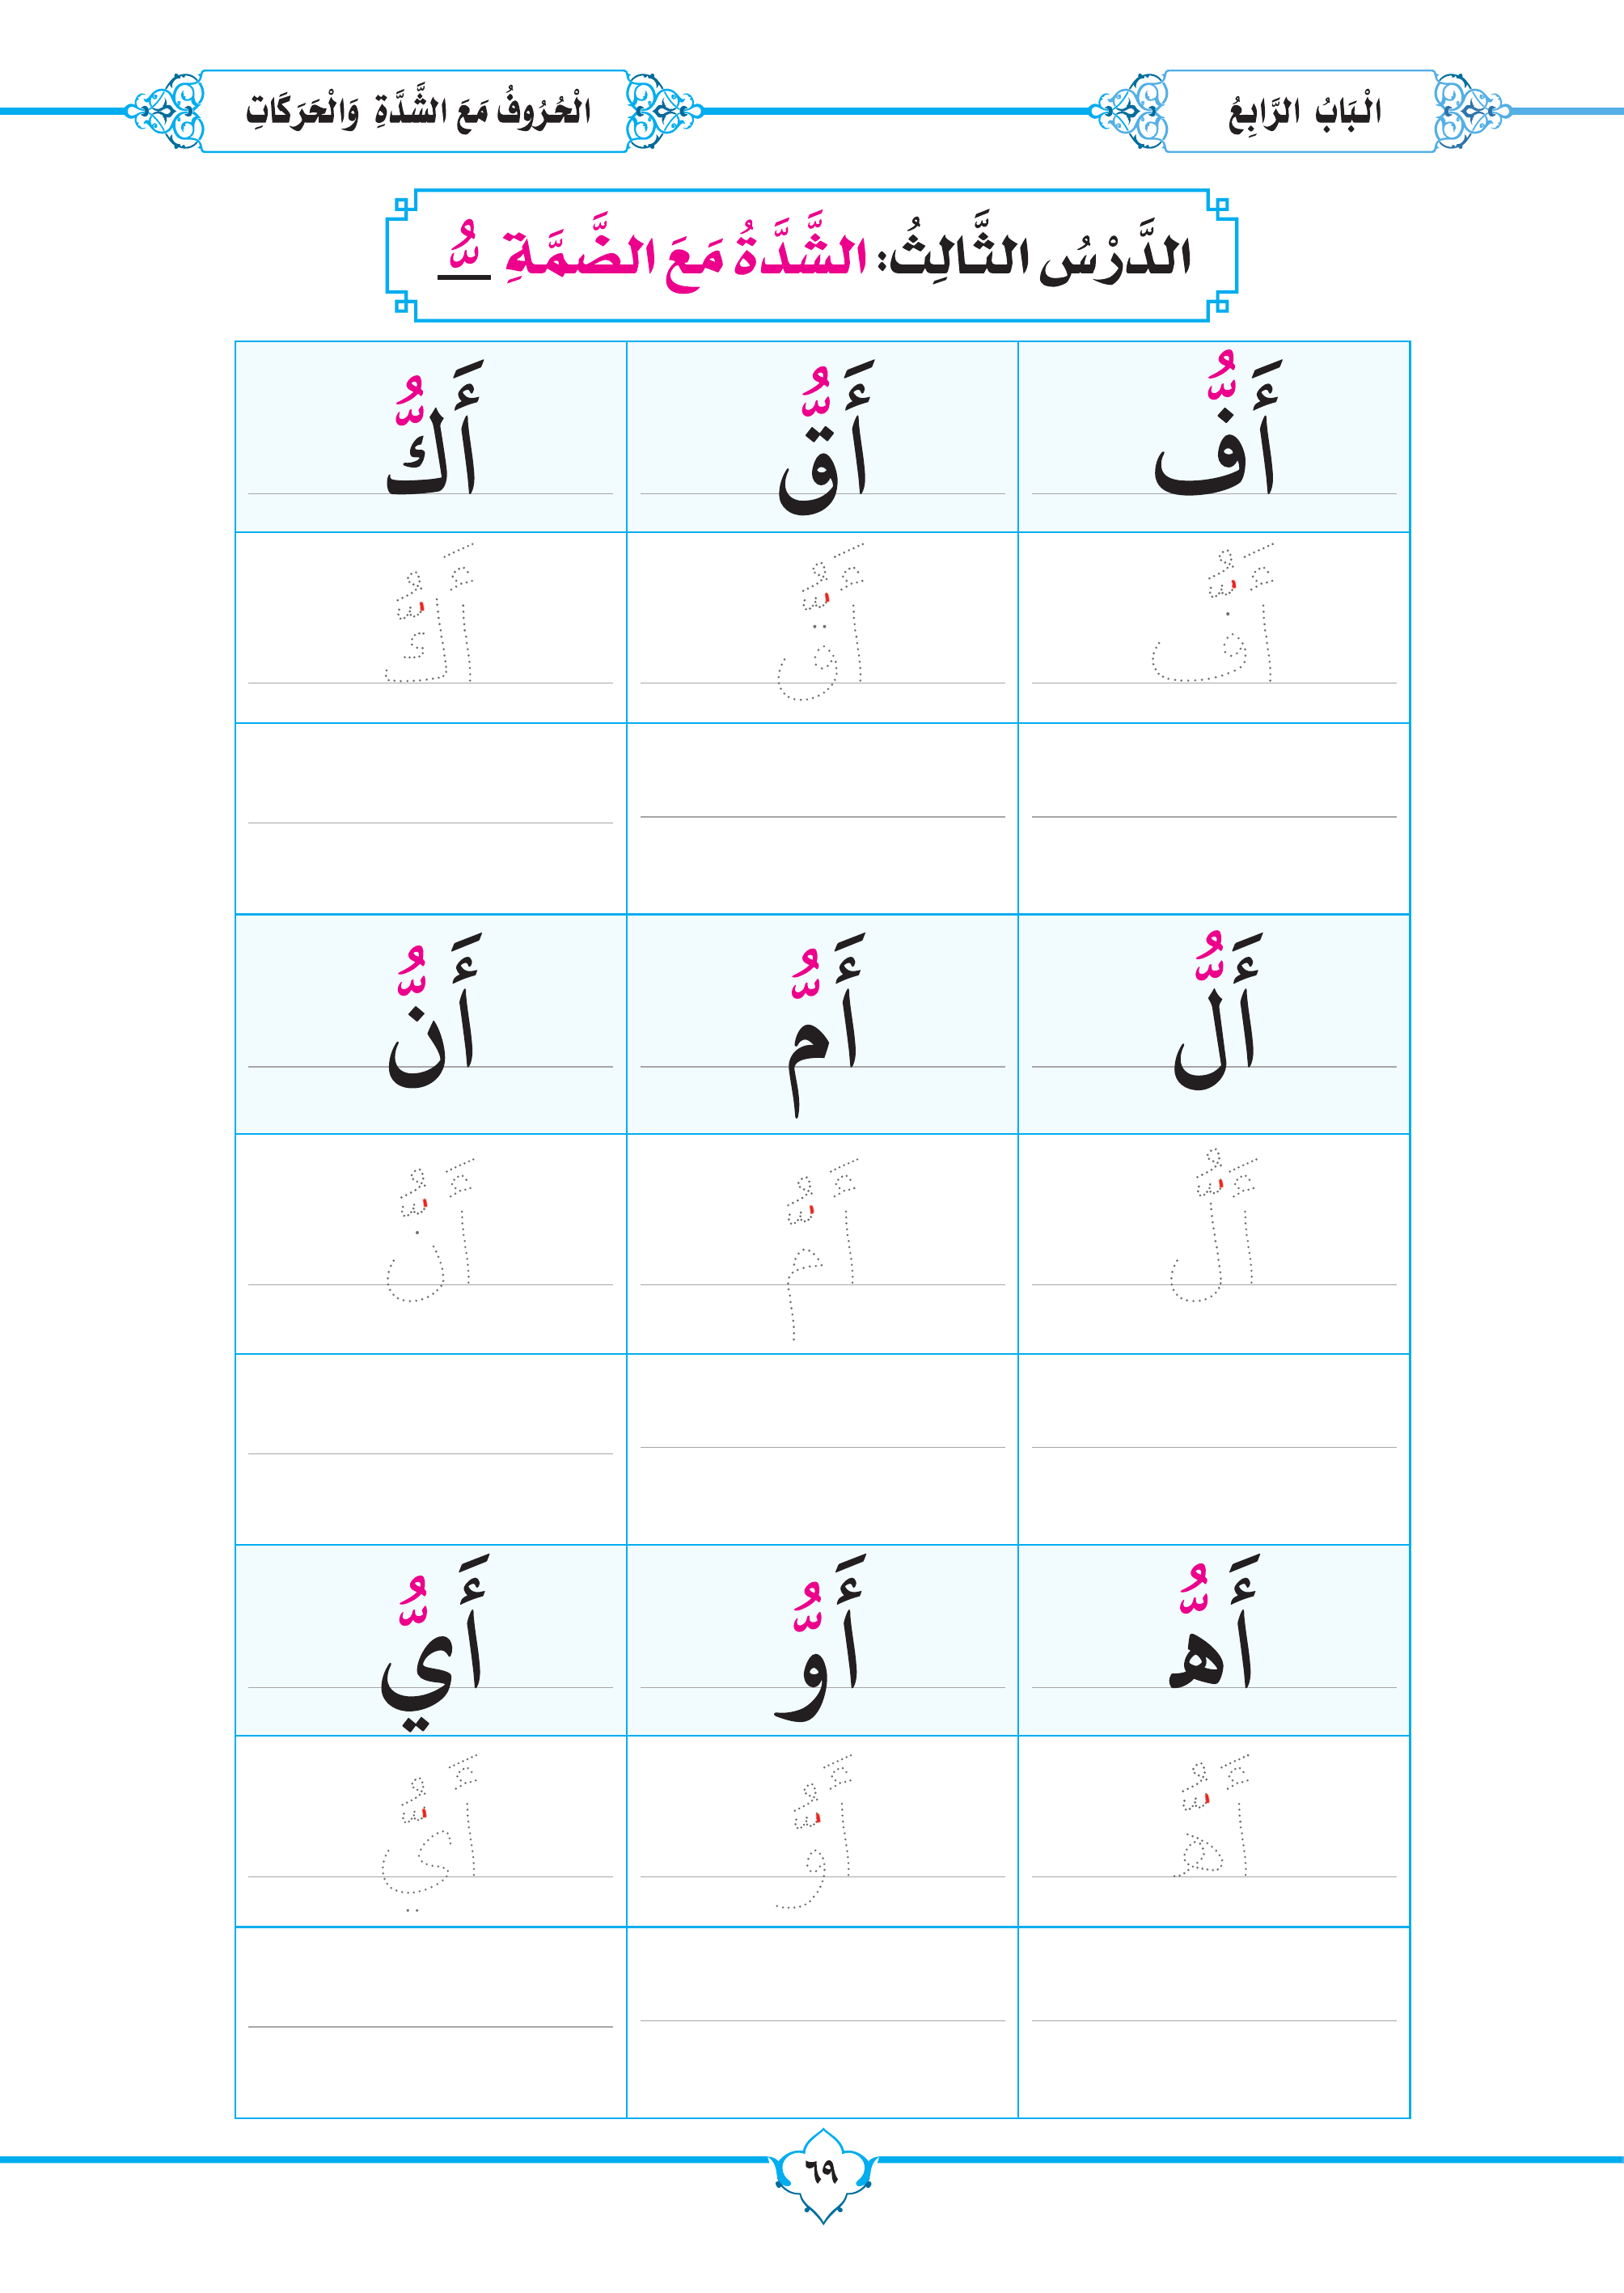 الْبَابُ الرَّابِعُ
الْحُرُوفُ مَعَ الشَّدَّةِ وَالْحَرَكَاتِ
الدَّرْسُ الثَّالِثُ: الشَّدَّةُ مَعَ الضَّمَّةِ ـُّ
أَفُّ أَقُّ أَكُّ
أَفُّ أَقُّ أَكُّ
أَلُّ أَمُّ أَنُّ
أَلُّ أَمُّ أَنُّ
أَهُّ أَوُّ أَيُّ
أَهُّ أَوُّ أَيُّ
٦٩